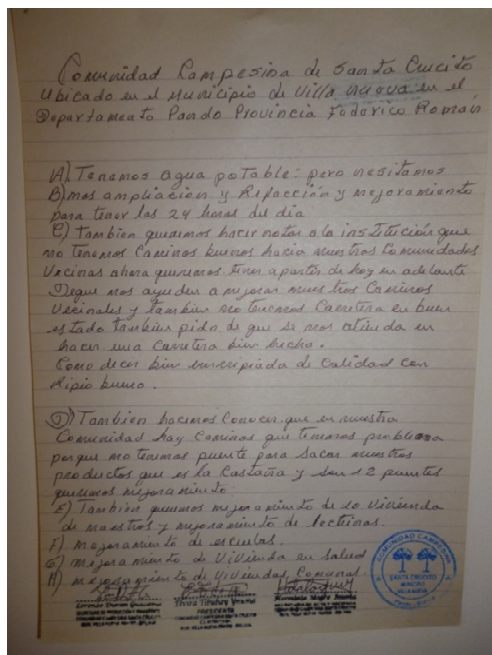 Comunidad Campesina de Santa Crucito
Ubicado en el Municipio de Villa nueva en el
Departamento Pando Provincia Foderico Román
A) Tenemos agua potable: pero nesitamos
B) mas ampliación y Refacción y mejoramiento
para tener las 24 horas del dia
C) Tambien queremos hacer notar a la institución que
no tenemos Caminos buenos hacia nuestros Comunidades
Vecinas ahora queremos a partir de hoy en adelante
Degue nos ayuden a mejorar nuestros Caminos
Vecinales y tambien no tenemos Carretera en buen
estado tambien pido de que se nos atienda en
hacer una Carretera bien hecha.
Como decir bien de Calidad con
Ripio bueno.
D) Tambien hacemos Conocer que en nuestra
Comunidad hay Caminos que tenemos problema
porque no tenemos puente para Sacar nuestros
productos que es la Castaña y son 12 puentes
queremos mejoramiento
E) Tambien queremos mejoramiento de la Vivienda
de maestros y mejoramiento de letrinas.
F) mejoramiento de escuelas.
G) mejoramiento de Vivienda en Salud
H) mejoramiento de Viviendas Comunal
PRESIDENTE
COMUNIDAD CAMPESINA
SANTA CRUCITO